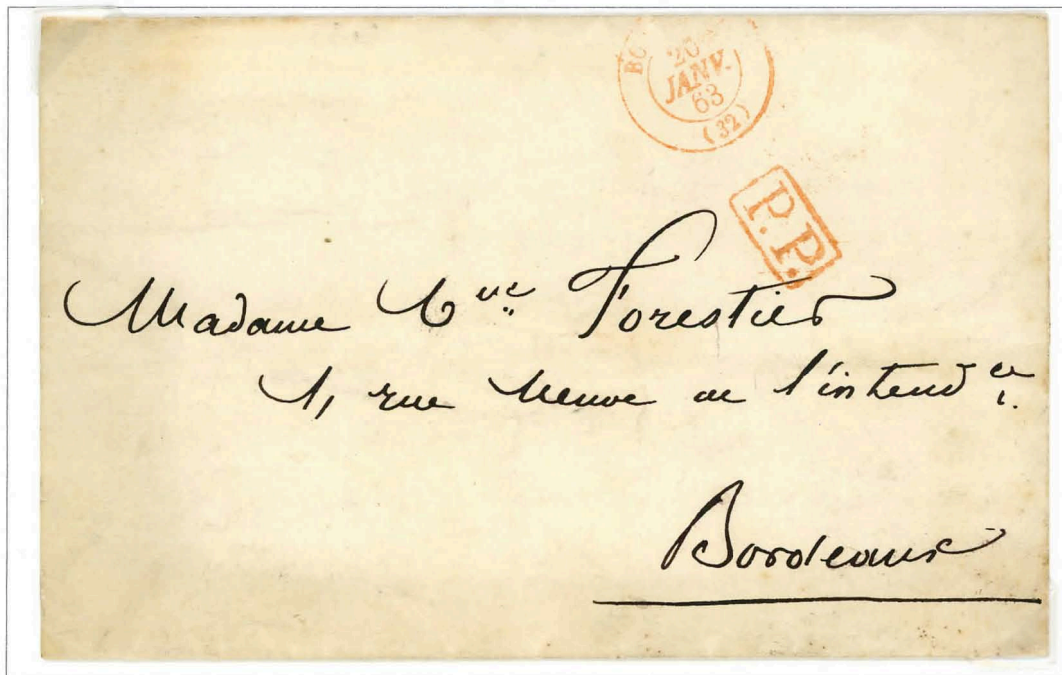 20
JANV.
63
(32)
P.P.
Madame Vve Forestier
1, rue Neuve de l'intendce
Bordeaux